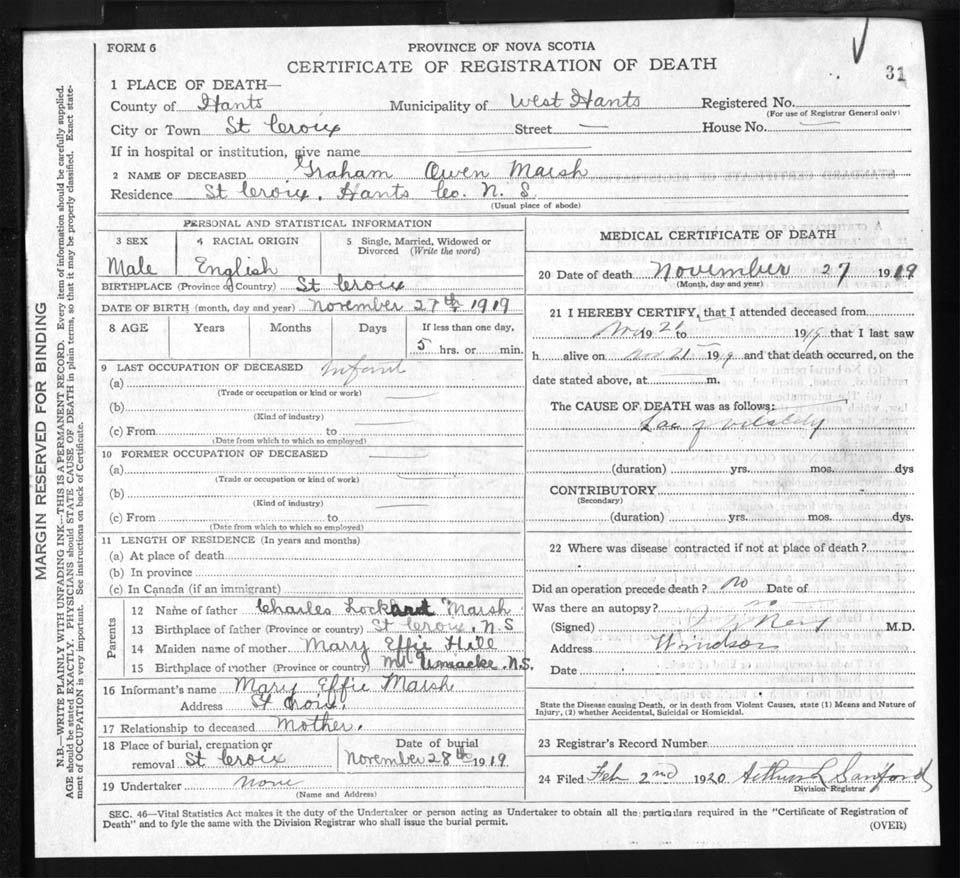 FORM 6
PROVINCE OF NOVA SCOTIA
CERTIFICATE OF REGISTRATION OF DEATH
31
1 PLACE OF DEATH—
County of Hants Municipality of West Hants Registered No.
(For use of Registrar General only)
City or Town St Croix Street — House No. —
If in hospital or institution, give name
2 NAME OF DECEASED Graham Owen Marsh
Residence St Croix, Hants Co. N. S.
(Usual place of abode)
PERSONAL AND STATISTICAL INFORMATION
3 SEX 4 RACIAL ORIGIN 5 Single, Married, Widowed or Divorced (Write the word)
Male English
BIRTHPLACE (Province or Country) St Croix
DATE OF BIRTH (month, day and year) November 27th 1919
8 AGE Years Months Days If less than one day,
5 hrs. or min.
9 LAST OCCUPATION OF DECEASED Infant
(a)
(Trade or occupation or kind or work)
(b)
(Kind of industry)
(c) From to
(Date from which to which so employed)
10 FORMER OCCUPATION OF DECEASED
(a)
(Trade or occupation or kind of work)
(b)
(Kind of industry)
(c) From to
(Date from which to which so employed)
11 LENGTH OF RESIDENCE (In years and months)
(a) At place of death
(b) In province
(c) In Canada (if an immigrant)
Parents
12 Name of father Charles Lockhart Marsh
13 Birthplace of father (Province or country) St Croix, N.S
14 Maiden name of mother Mary Effie Hill
15 Birthplace of mother (Province or country) Mt Uniacke N.S.
16 Informant's name Mary Effie Marsh
Address St Croix.
17 Relationship to deceased Mother.
18 Place of burial, cremation or removal St Croix
Date of burial November 28th 1919
19 Undertaker none
(Name and Address)
MEDICAL CERTIFICATE OF DEATH
20 Date of death November 27 1919
(Month, day and year)
21 I HEREBY CERTIFY, that I attended deceased from
19 to 1919 that I last saw
h alive on 19 and that death occurred, on the
date stated above, at m.
The CAUSE OF DEATH was as follows:
Lac of vitality
(duration) yrs. mos. dys
CONTRIBUTORY
(Secondary)
(duration) yrs. mos. dys.
22 Where was disease contracted if not at place of death?
Did an operation precede death? no Date of
Was there an autopsy? no
(Signed) M.D.
Address Windsor
Date
State the Disease causing Death, or in death from Violent Causes, state (1) Means and Nature of
Injury, (2) whether Accidental, Suicidal or Homicidal.
23 Registrar's Record Number
24 Filed Feb 2nd 1920 Arthur L Sanford
Division Registrar
SEC. 46—Vital Statistics Act makes it the duty of the Undertaker or person acting as Undertaker to obtain all the particulars required in the "Certificate of Registration of
Death" and to fyle the same with the Division Registrar who shall issue the burial permit.
(OVER)
MARGIN RESERVED FOR BINDING
N.B.—WRITE PLAINLY WITH UNFADING INK—THIS IS A PERMANENT RECORD. Every item of information should be carefully supplied.
AGE should be stated EXACTLY. PHYSICIANS should STATE CAUSE OF DEATH in plain terms, so that it may be properly classified. Exact state-
ment of OCCUPATION is very important. See instructions on back of Certificate.